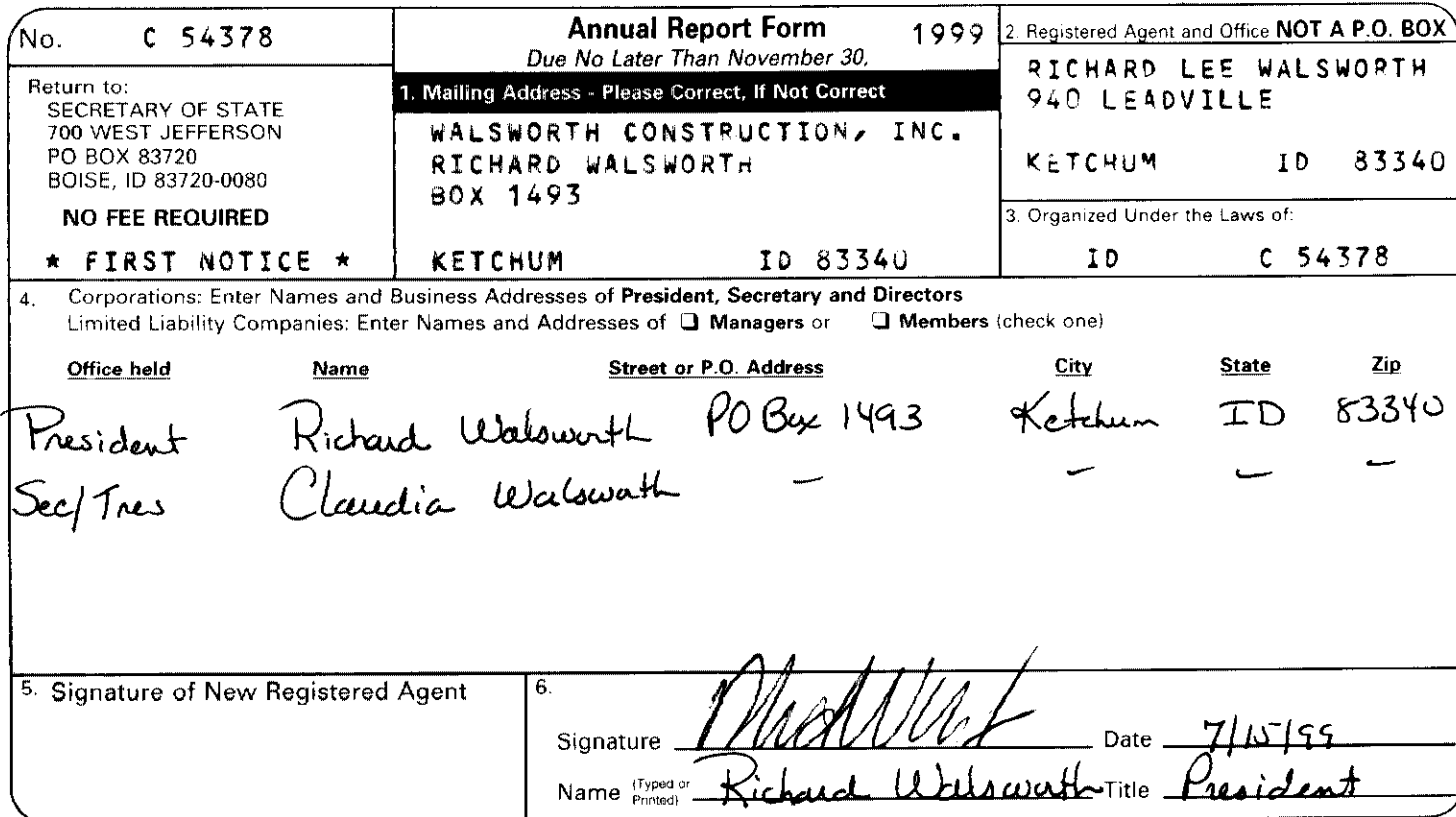 No. C 54378
Return to:
SECRETARY OF STATE
700 WEST JEFFERSON
PO BOX 83720
BOISE, ID 83720-0080
NO FEE REQUIRED
* FIRST NOTICE *
Annual Report Form 1999
Due No Later Than November 30,
1. Mailing Address - Please Correct, If Not Correct
WALSWORTH CONSTRUCTION, INC.
RICHARD WALSWORTH
BOX 1493
KETCHUM ID 83340
2. Registered Agent and Office NOT A P.O. BOX
RICHARD LEE WALSWORTH
940 LEADVILLE
KETCHUM ID 83340
3. Organized Under the Laws of:
ID C 54378
4. Corporations: Enter Names and Business Addresses of President, Secretary and Directors
Limited Liability Companies: Enter Names and Addresses of ❑ Managers or ❑ Members (check one)
Office held Name Street or P.O. Address City State Zip
President Richard Walsworth PO Box 1493 Ketchum ID 83340
Sec/Tres Claudia Walsworth - - - -
5. Signature of New Registered Agent
6.
Signature Date 7/15/99
Name (Typed or Printed) Richard Walsworth Title President